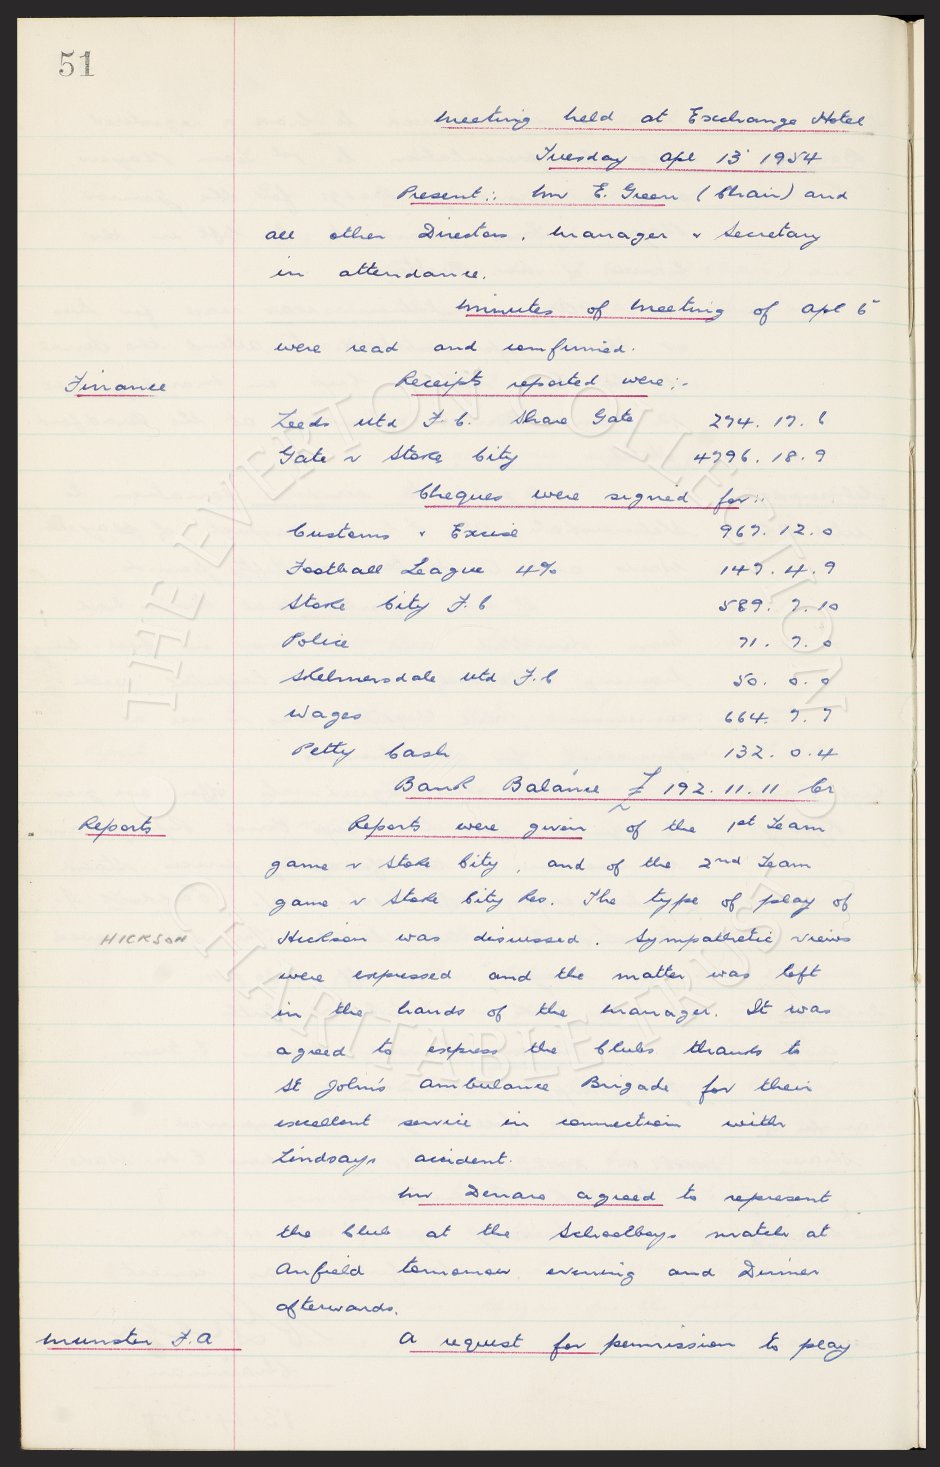 51
Meeting held at Exchange Hotel
Tuesday Apl 13 1954
Present :: Mr E. Green (Chair) and
all other Directors. Manager & Secretary
in attendance.
Minutes of Meeting of Apl 6
were read and confirmed.
Finance
Receipts reported were :-
Leeds Utd F.C. Share Gate 274. 17. 6
Gate v Stoke City 4796. 18. 9
Cheques were signed for ::
Customs & Excise 967. 12. 0
Football League 4% 147. 4. 9
Stoke City F.C 589. 7. 10
Police 71. 7. 0
Skelmersdale Utd F.C 50. 0. 0
Wages 664. 7. 7
Petty Cash 132. 0. 4
Bank Balance £ 192. 11. 11 Cr
Reports
Reports were given of the 1st Team
game v Stoke City, and of the 2nd Team
game v Stoke City Res. The type of play of
HICKSON
Hickson was discussed. Sympathetic views
were expressed and the matter was left
in the hands of the Manager. It was
agreed to express the Clubs thanks to
St John's Ambulance Brigade for their
excellent service in connection with
Lindsays accident.
Mr Denaro agreed to represent
the Club at the Schoolboys match at
Anfield tomorrow evening and Dinner
afterwards.
Munster F.A
A request for permission to play
© THE EVERTON COLLECTION
CHARITABLE TRUST